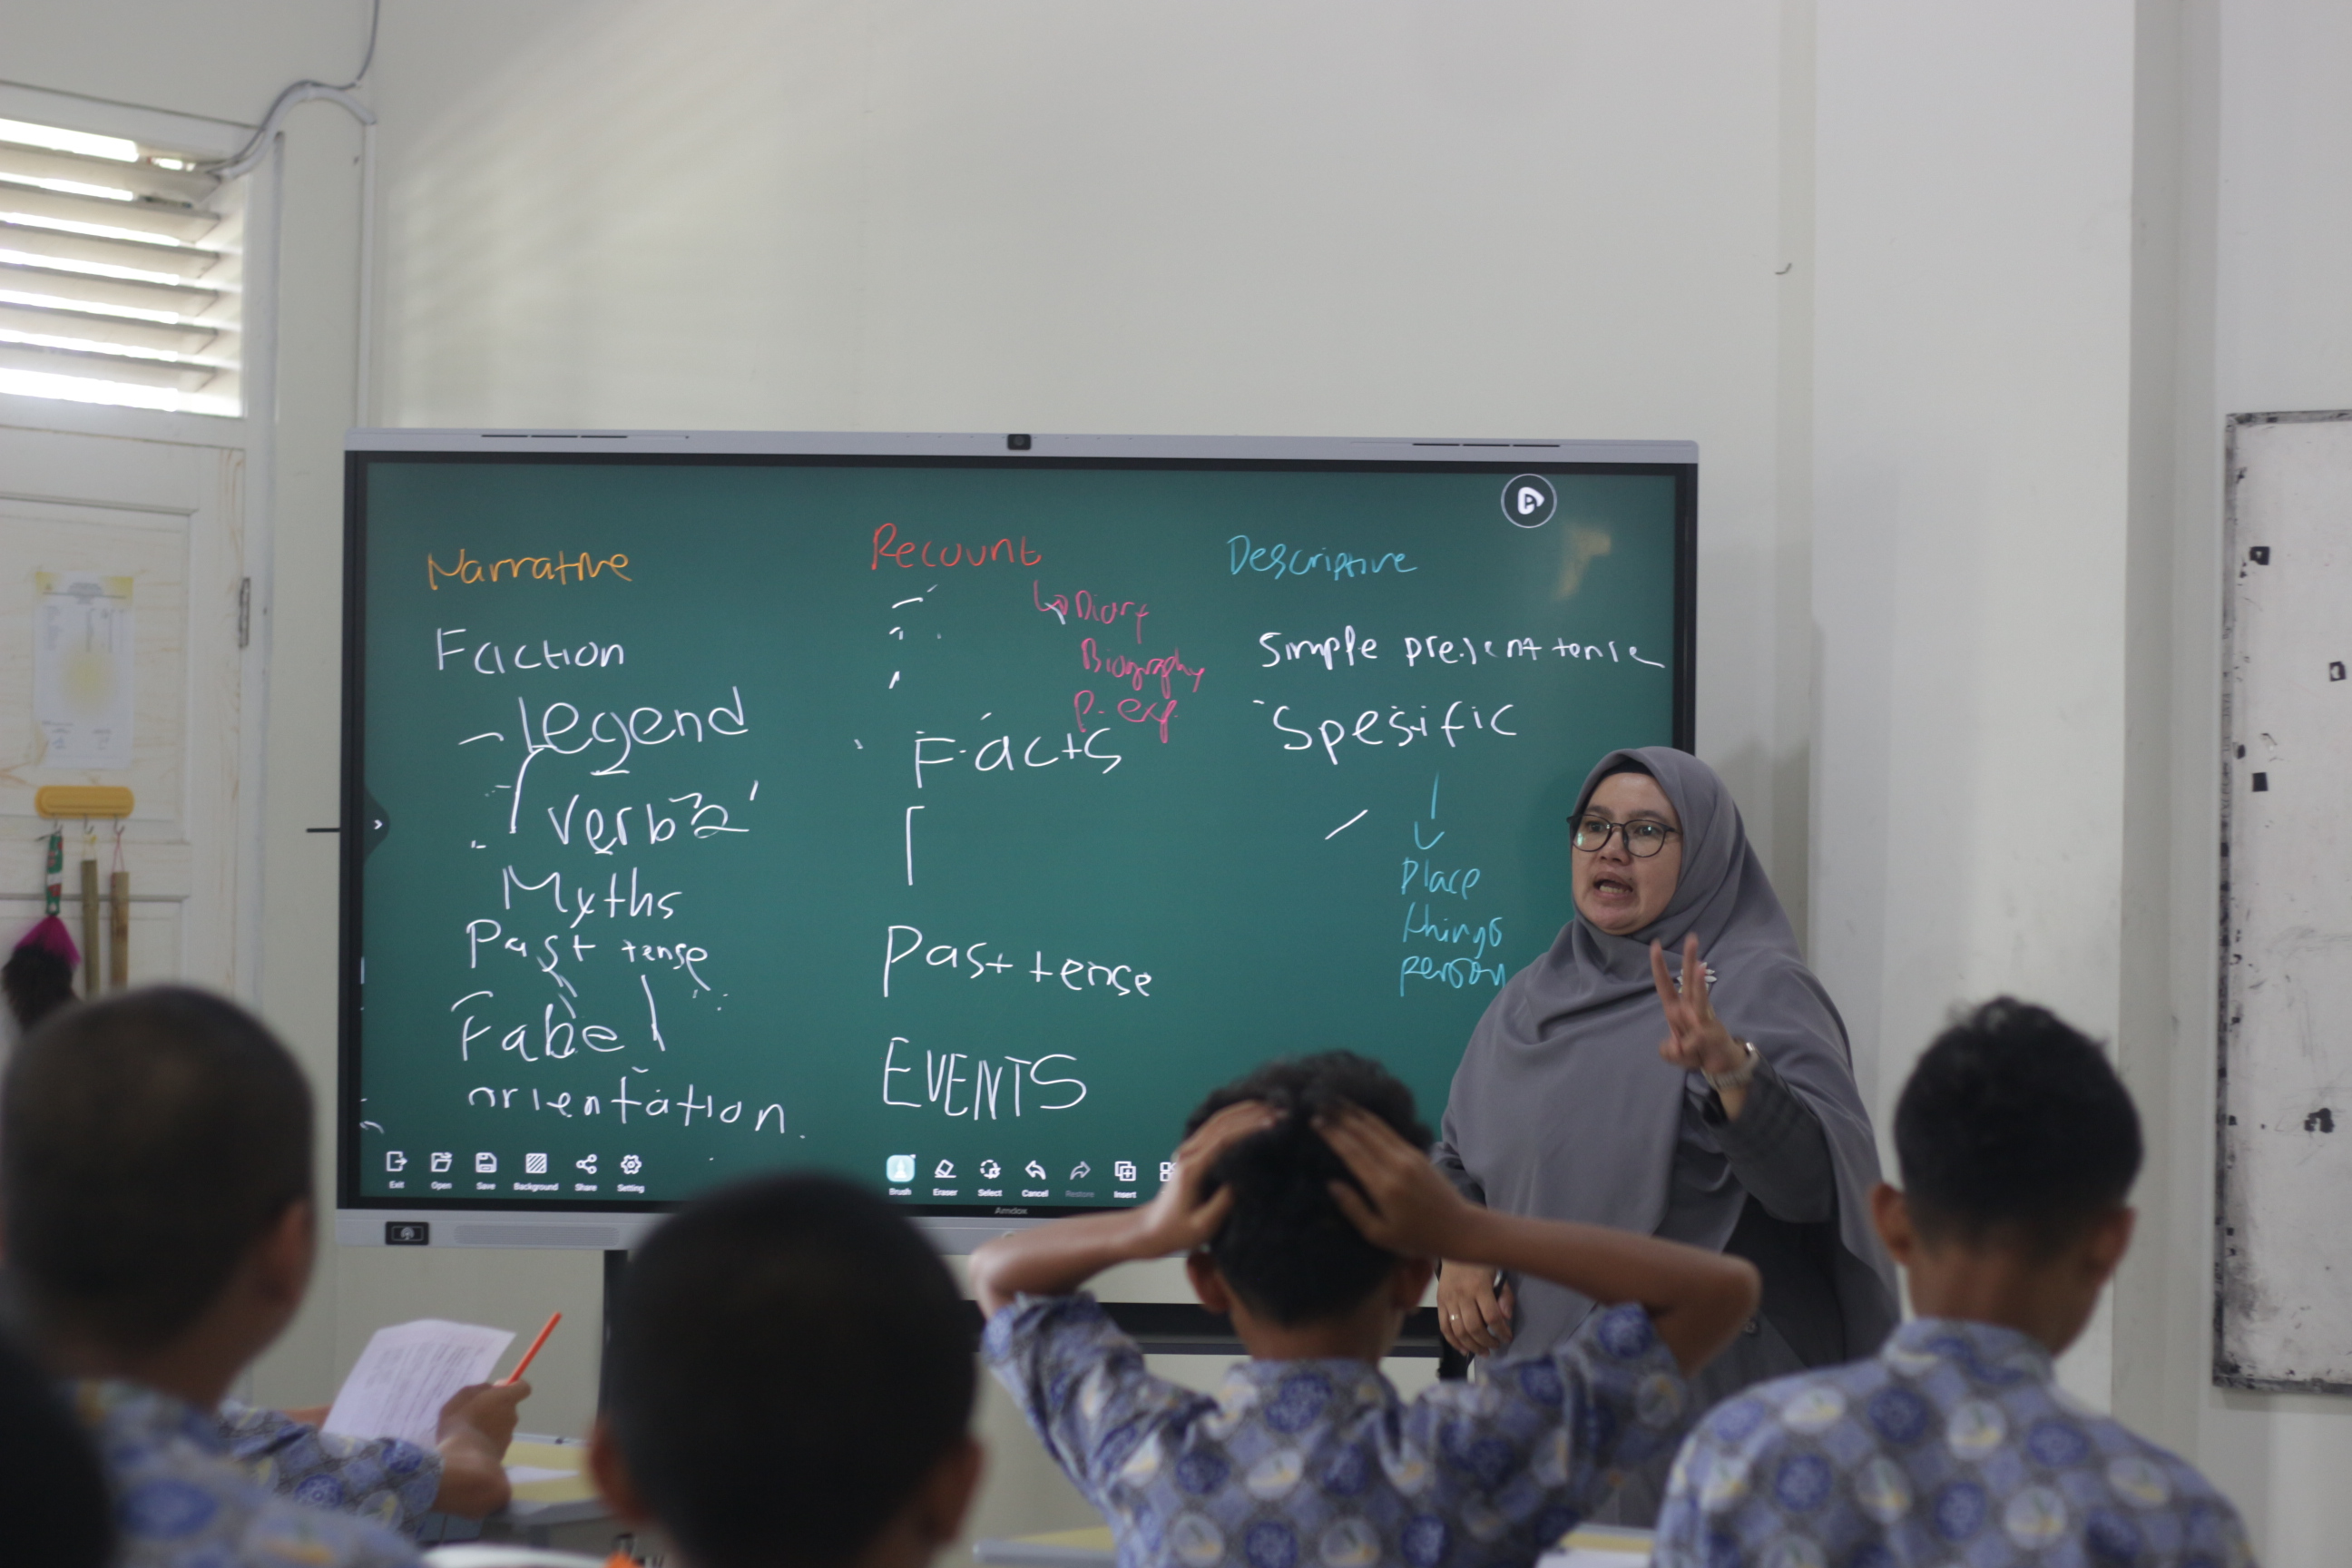 Narrative
Faction
- Legend
Verb 2
Myths
Past tense
Fabel
orientation.
Recount
Diary
Biography
P. exp.
Facts
Past tense
EVENTS
Descriptive
Simple present tense
Spesific
Place
things
person
Exit Open Save Background Share Setting
Brush Eraser Select Cancel Restore Insert
Amdox